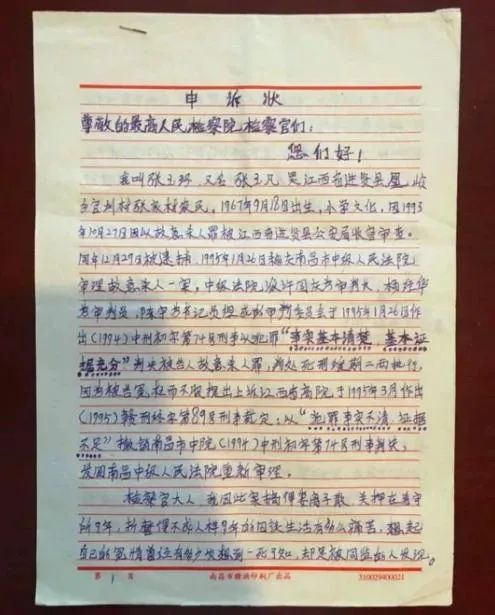 申诉状
尊敬的最高人民检察院检察官们:
您们好!
我叫张玉环 又名 张玉凡 是江西省进贤县凰岭
乡官圳村张家村农民, 1967年9月18日出生, 小学文化, 因1993
年10月27日因以故意杀人罪被江西省进贤县公安局收容审查。
同年12月29日被逮捕, 1995年1月26日由南昌市中级人民法院
审理故意杀人一案, 中级法院 为审判长, 杨
为审判员, 陈 书记员组成 审判委员会于1995年1月26日作
出(1994)中刑初字第74号刑事以犯罪“事实基本清楚, 基本证
据充分”判决被告人故意杀人罪, 判处死刑缓期二年执行,
因为被告冤枉而不服提出上诉江西省高院于1995年3月作出
(1995)赣刑终字第89号刑事裁定: 以“犯罪事实不清, 证据
不足”撤销南昌市中院(1994)中刑初字第74号刑事判决,
发回南昌中级人民法院重新审理。
检察官大人, 我因此案搞得妻离子散, 关押在看守
所9年, 折磨得不成人样9年的囚徒生活有多么痛苦, 想起
自己的冤情曾经有多少次想到一死了知, 却是被同监的人发现。
第 1 页 南昌市赣滨印刷厂出品 310029400021